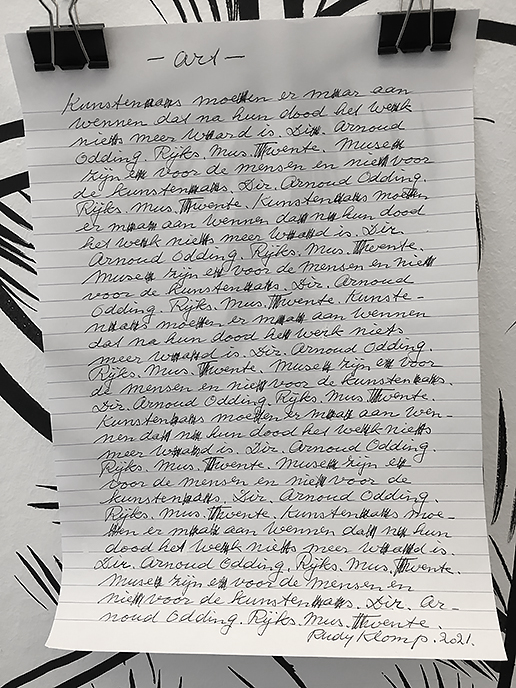 - art -
Kunstenaars moeten er maar aan
wennen dat na hun dood het werk
niets meer waard is. Dir. Arnoud
Odding. Rijks. Mus. Twente. Musea
zijn er voor de mensen en niet voor
de kunstenaars. Dir. Arnoud Odding.
Rijks. Mus. Twente. Kunstenaars moeten
er maar aan wennen dat na hun dood
het werk niets meer waard is. Dir.
Arnoud Odding. Rijks. Mus. Twente.
Musea zijn er voor de mensen en niet
voor de kunstenaars. Dir. Arnoud
Odding. Rijks. Mus. Twente. Kunste-
naars moeten er maar aan wennen
dat na hun dood het werk niets
meer waard is. Dir. Arnoud Odding.
Rijks. Mus. Twente. Musea zijn er voor
de mensen en niet voor de kunstenaars.
Dir. Arnoud Odding. Rijks. Mus. Twente.
Kunstenaars moeten er maar aan wen-
nen dat na hun dood het werk niets
meer waard is. Dir. Arnoud Odding.
Rijks. Mus. Twente. Musea zijn er
voor de mensen en niet voor de
kunstenaars. Dir. Arnoud Odding.
Rijks. Mus. Twente. Kunstenaars moe-
ten er maar aan wennen dat na hun
dood het werk niets meer waard is.
Dir. Arnoud Odding. Rijks. Mus. Twente.
Musea zijn er voor de mensen en
niet voor de kunstenaars. Dir. Ar-
noud Odding. Rijks. Mus. Twente.
Rudy Klomp. 2021.